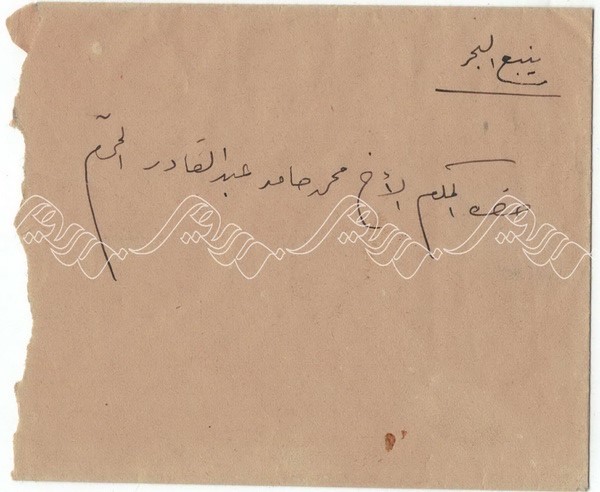 ينبع البحر
حضرة المكرم الأخ محمد حامد عبد القادر المحترم